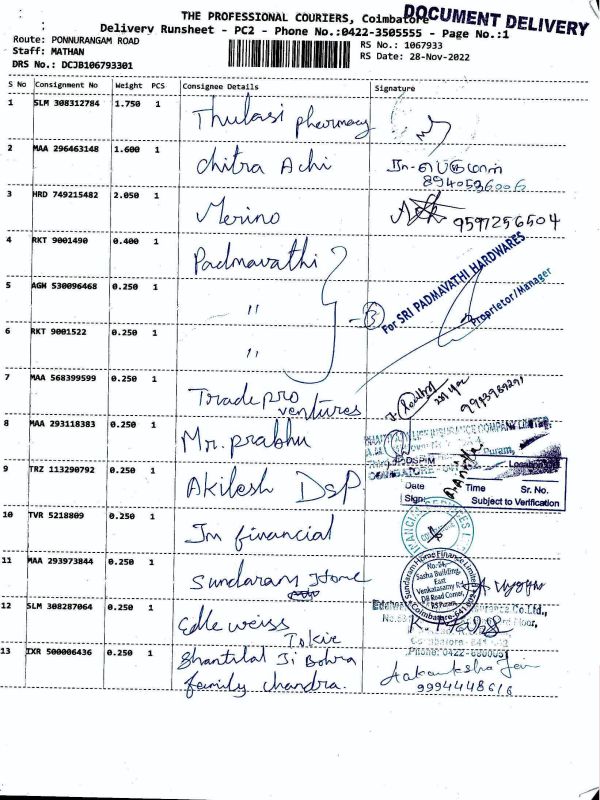 THE PROFESSIONAL COURIERS, Coimbatore
DOCUMENT DELIVERY
Delivery Runsheet - PC2 - Phone No.:0422-3505555 - Page No.:1
Route: PONNURANGAM ROAD
RS No.: 1067933
Staff: MATHAN
RS Date: 28-Nov-2022
DRS No.: DCJB106793301
S No Consignment No Weight PCS Consignee Details Signature
1 SLM 308312784 1.750 1 Thulasi pharmacy
2 MAA 296463148 1.600 1 Chitra Achi
3 HRD 749215482 2.050 1 Merino 9597256504
4 RKT 9001490 0.400 1 Padmavathi
5 AGN 530096468 0.250 1 "
3
For SRI PADMAVATHI HARDWARES
Proprietor/Manager
6 RKT 9001522 0.250 1 "
7 MAA 568399599 0.250 1 Tradepro
ventures
8 MAA 293118383 0.250 1 Mr. prabhu
LIFE INSURANCE COMPANY LIMITED
9 TRZ 113290792 0.250 1 Akilesh DSP
Date Time Sr. No.
Subject to Verification
10 TVR 5218809 0.250 1 Im financial
11 MAA 293973844 0.250 1 Sundaram Home
Sundaram Home Finance Limited
No:54,
Sasha Building,
East
Venkatasamy Rd
DB Road Corner,
RS Puram,
Coimbatore
12 SLM 308287064 0.250 1 Edle weiss
Tokio
Phone: 0422-
13 IXR 500006436 0.250 1 Shantilal Ji Bohra
family chandra.
Aakanksha Jain
9994448616